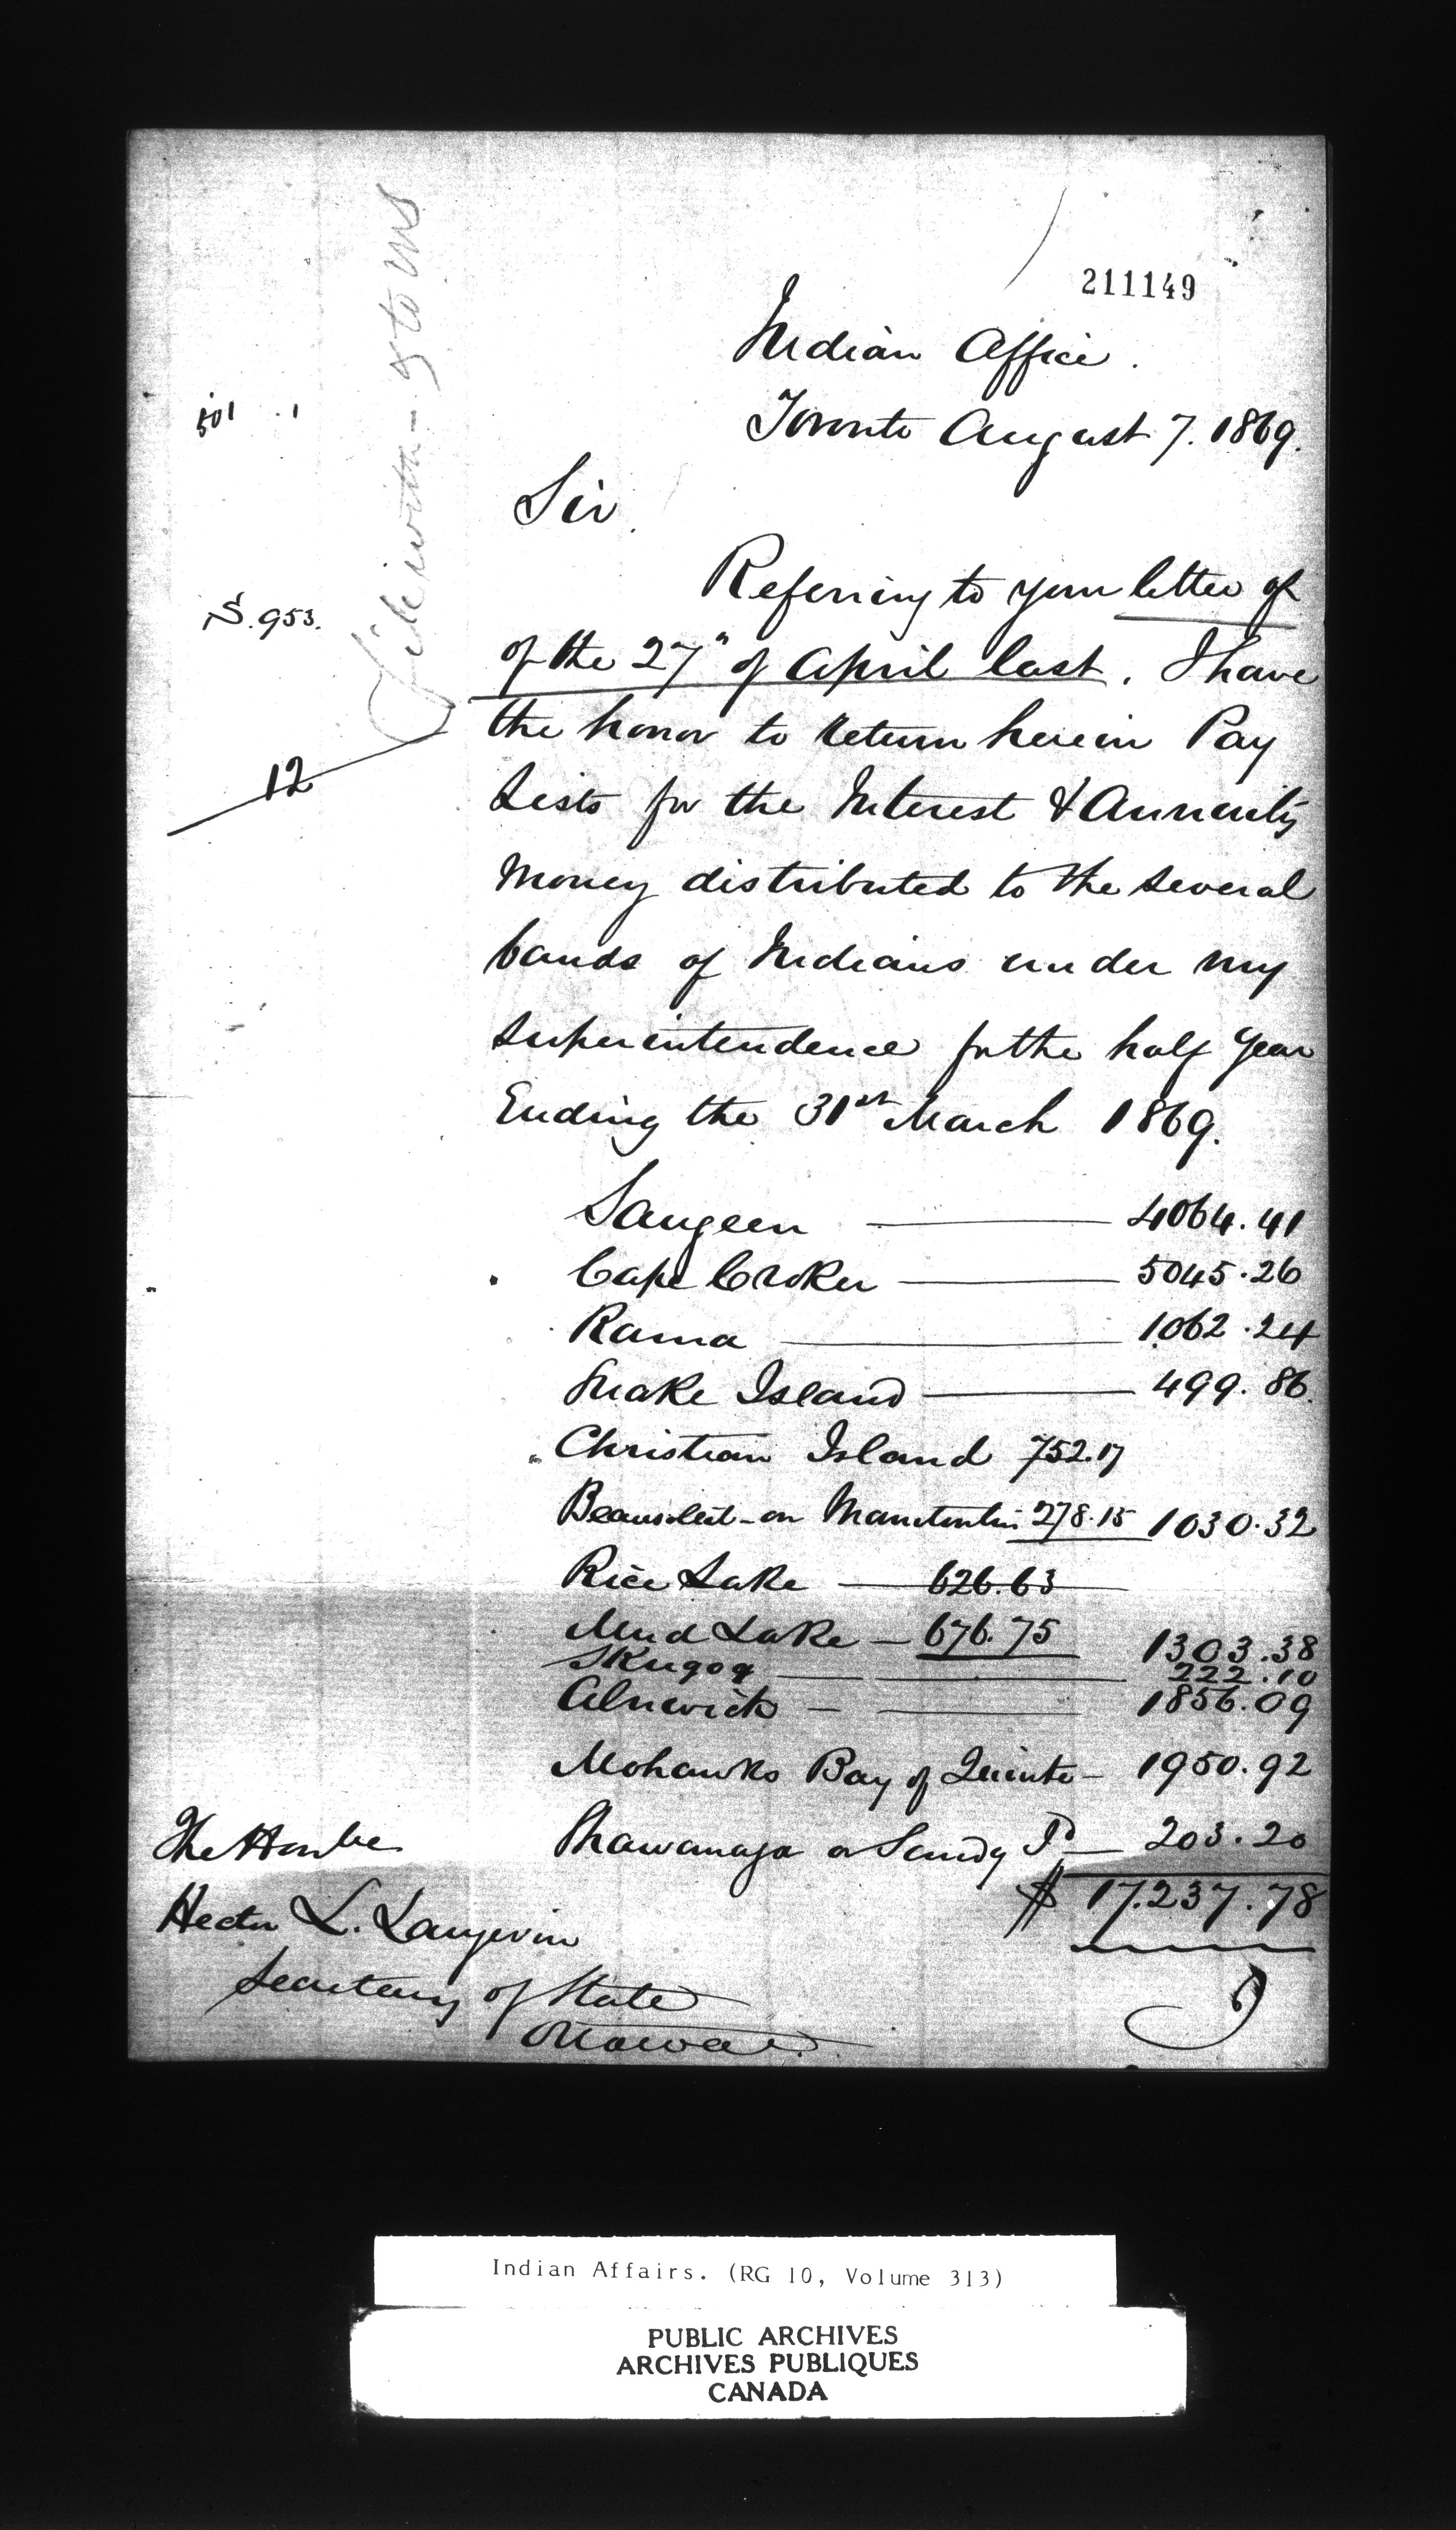 211149
Indian Office.
Toronto August 7. 1869.
501 . 1
Sir.
Referring to your letter of
S. 953.
of the 27" of April last, I have
the honor to return herein Pay
12
Lists for the Interest & Annuity
Money distributed to the several
bands of Indians under my
superintendence for the half year
Ending the 31st March 1869.
Saugeen 4064.41
Cape Croker 5045.26
Rama 1062.24
Snake Island 499.86
Christian Island 752.17
Beausoleil - on Manitoulin 278.15 1030.32
Rice Lake 626.63
Mud Lake — 676.75 1303.38
Skugog 222.10
Alnwick — 1856.09
Mohawks Bay of Quinte — 1950.92
Shawanaga or Sandy Id — 203.20
$ 17.237.78
The Honble
Hector L. Langevin
Secretary of State
Ottawa
Indian Affairs. (RG 10, Volume 313)
PUBLIC ARCHIVES
ARCHIVES PUBLIQUES
CANADA